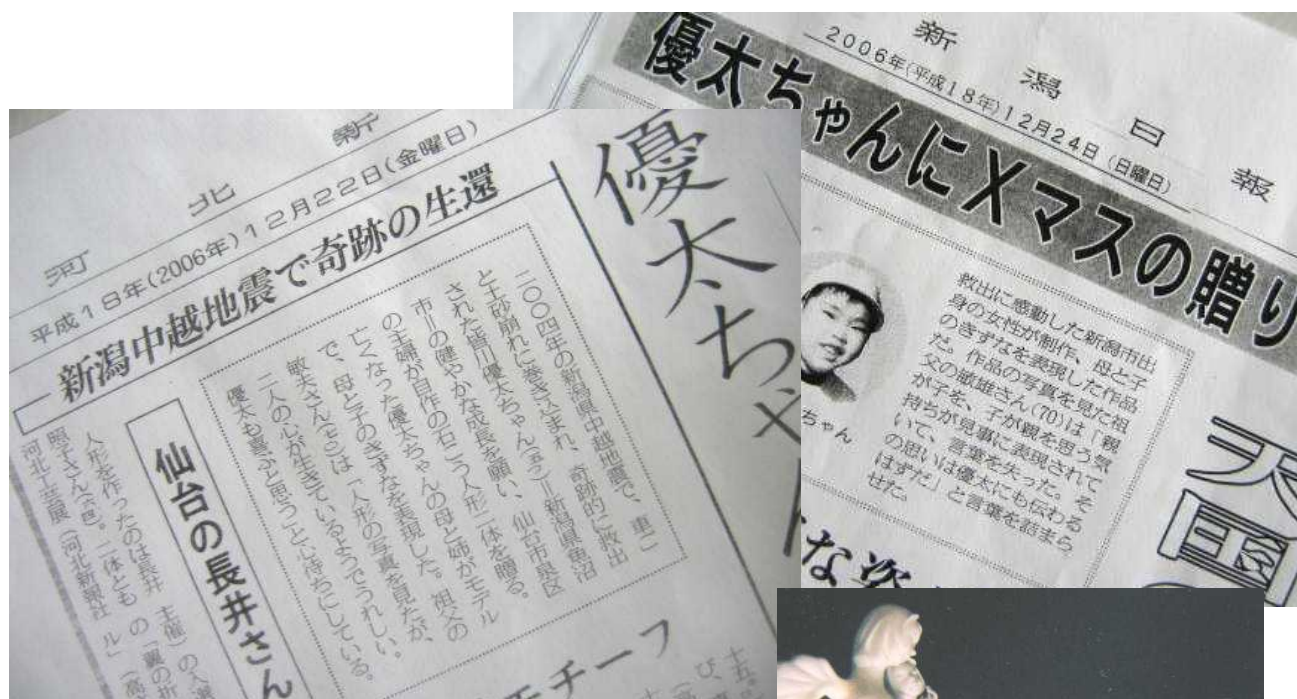 河北新
平成18年(2006年)12月22日(金曜日)
新潟中越地震で奇跡の生還
優太ちゃ
二〇〇四年の新潟県中越地震で、車ご
と土砂崩れに巻き込まれ、奇跡的に救出
された皆川優太ちゃん(四つ)＝新潟県魚沼
市＝の健やかな成長を願い、仙台市泉区
の主婦が自作の石こう人形二体を贈る。
亡くなった優太ちゃんの母と姉がモデル
で、母と子のきずなを表現した。祖父の
敏夫さん(七〇)は「人形の写真を見たが、
二人の心が生きているようでうれしい。
優太も喜ぶと思うと心待ちにしている。
仙台の長井さん
人形を作ったのは長井
照子さん。二体とも
河北工芸展（河北新報社
主催）の入選
の「翼の折
ル」（高
モチーフ
新潟日報
2006年(平成18年)12月24日(日曜日)
優太ちゃんにXマスの贈り
救出に感動した新潟市出
身の女性が制作、母と子
のきずなを表現した作品
だ。作品の写真を見た祖
父の敏雄さん(70)は「親
が子を、子が親を思う気
持ちが見事に表現されて
いて、言葉を失った。そ
の思いは優太にも伝わる
はずだ」と言葉を詰まら
せた。
ちゃん
天国
な姿